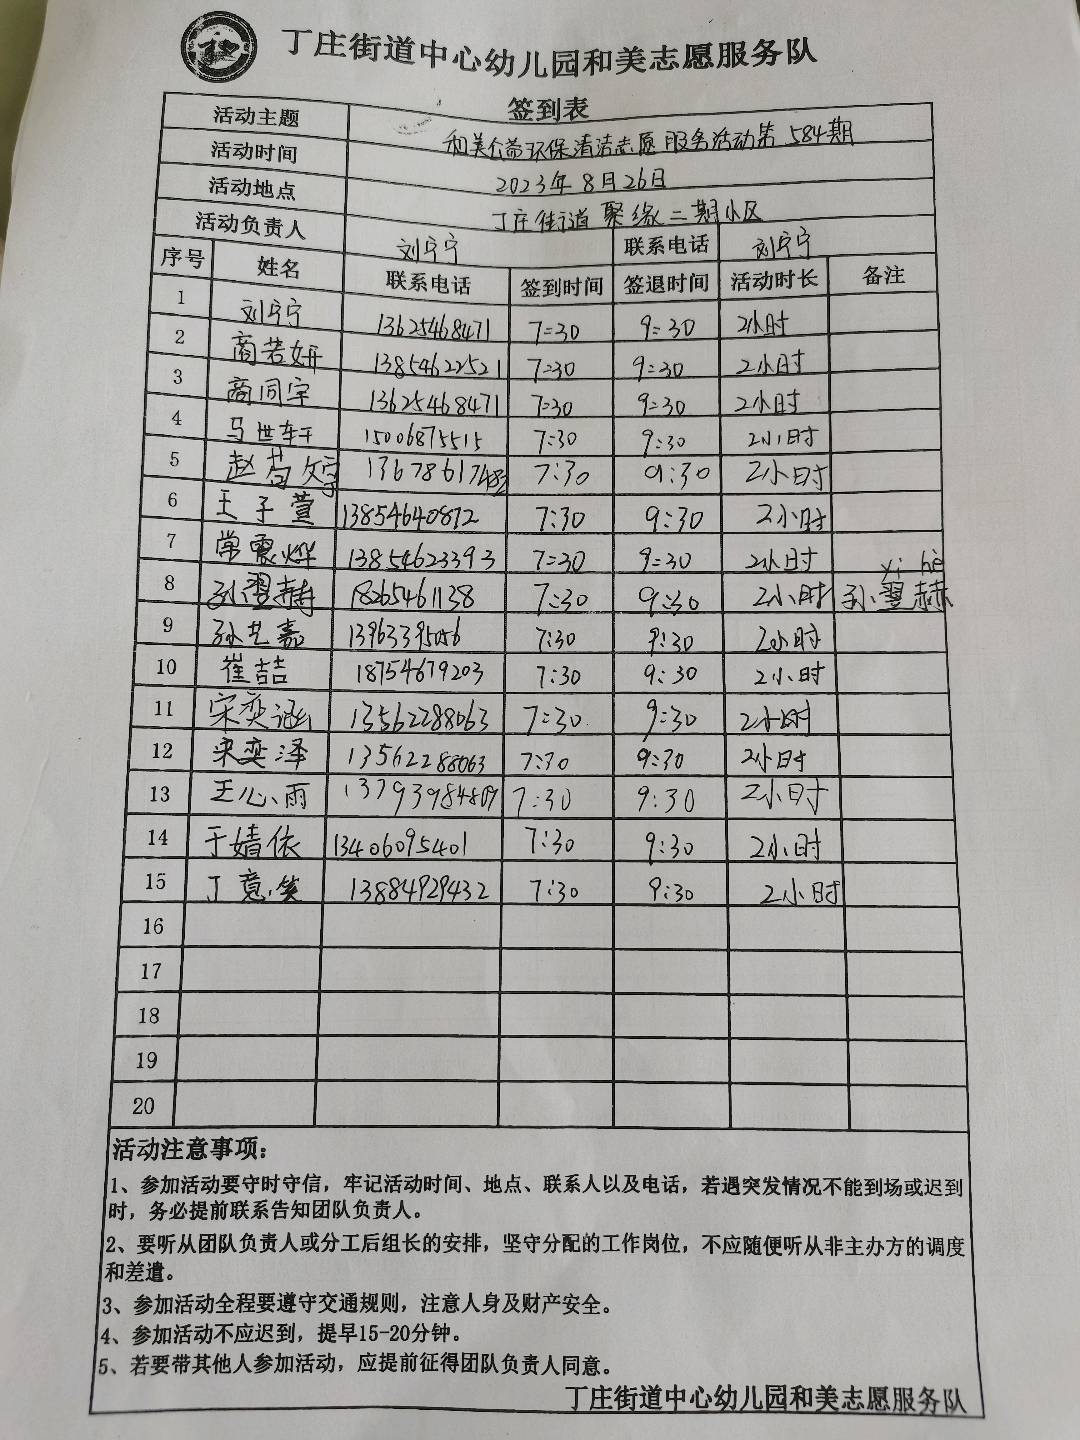 丁庄街道中心幼儿园和美志愿服务队
签到表
活动主题 和美公益环保清洁志愿服务活动第584期
活动时间 2023年8月26日
活动地点 丁庄街道聚缘二期小区
活动负责人 刘宁宁 联系电话 刘宁宁
序号 姓名 联系电话 签到时间 签退时间 活动时长 备注
1 刘宁宁 13625468471 7:30 9:30 2小时
2 商若妍 13854622521 7:30 9:30 2小时
3 商同宇 13625468471 7:30 9:30 2小时
4 马世轩 15006875515 7:30 9:30 2小时
5 赵 7:30 9:30 2小时
6 王子萱 13854640872 7:30 9:30 2小时
7 常震烨 13854623393 7:30 9:30 2小时
yi hè
8 孙翌赫 18265461138 7:30 9:30 2小时 孙翌赫
9 孙艺嘉 13963395056 7:30 9:30 2小时
10 崔喆 18754679203 7:30 9:30 2小时
11 宋奕涵 13562288063 7:30 9:30 2小时
12 宋奕泽 13562288063 7:30 9:30 2小时
13 王心雨 13793984809 7:30 9:30 2小时
14 于婧依 13406095401 7:30 9:30 2小时
15 丁意笑 13884929432 7:30 9:30 2小时
16
17
18
19
20
活动注意事项：
1、参加活动要守时守信，牢记活动时间、地点、联系人以及电话，若遇突发情况不能到场或迟到
时，务必提前联系告知团队负责人。
2、要听从团队负责人或分工后组长的安排，坚守分配的工作岗位，不应随便听从非主办方的调度
和差遣。
3、参加活动全程要遵守交通规则，注意人身及财产安全。
4、参加活动不应迟到，提早15-20分钟。
5、若要带其他人参加活动，应提前征得团队负责人同意。
丁庄街道中心幼儿园和美志愿服务队